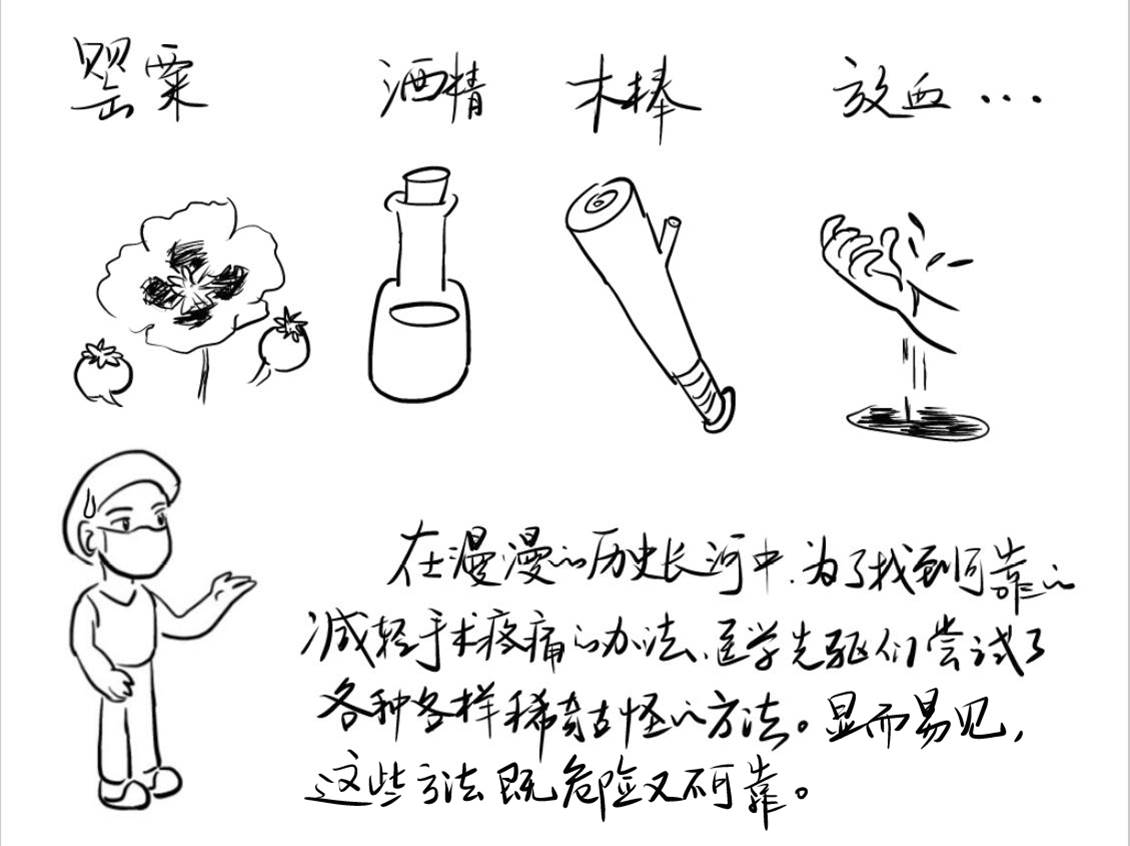 罂粟 酒精 木棒 放血...
在漫漫的历史长河中,为了找到可靠的
减轻手术疼痛的办法,医学先驱们尝试了
各种各样稀奇古怪的方法。显而易见,
这些方法既危险又不可靠。